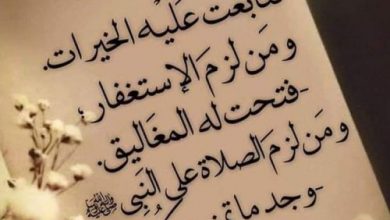 تتابعت عليه الخيرات.
ومن لزم الإستغفار،
-فتحت له المغاليق.
ومن لزم الصلاة على النبي ﷺ
-وجد ما